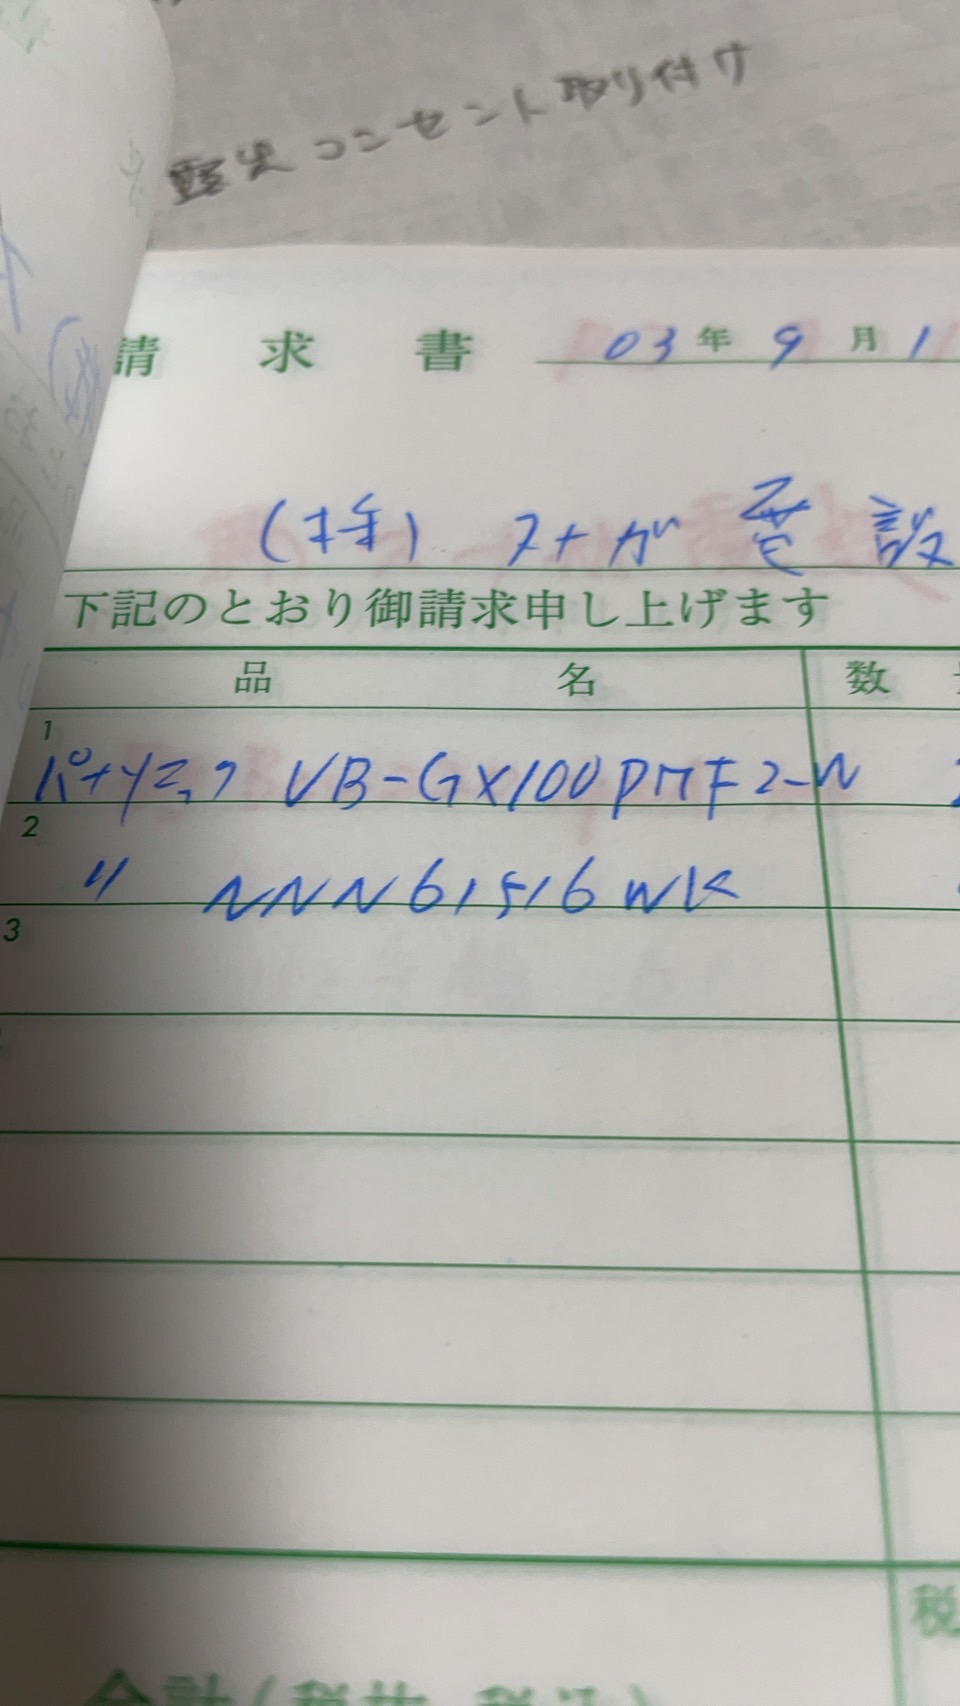 露出コンセント取り付け
請求書 03年9月1
(株) スナガ電設
下記のとおり御請求申し上げます
品名 数
1
パナソニック VB-GX100PMF2-W
2
〃 NNN61516WK
3
税
合計(税抜・税込)